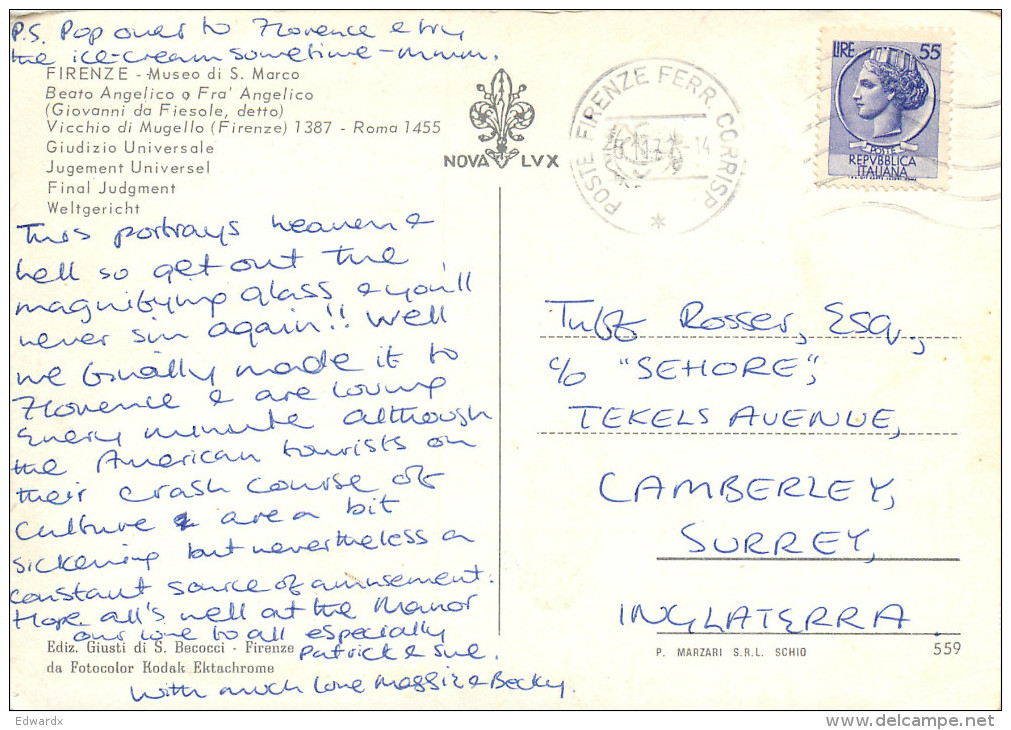 P.S. Pop over to Florence & try
the ice-cream sometime - mmm.
FIRENZE - Museo di S. Marco
Beato Angelico o Fra' Angelico
(Giovanni da Fiesole, detto)
Vicchio di Mugello (Firenze) 1387 - Roma 1455
Giudizio Universale
Jugement Universel
Final Judgment
Weltgericht
This portrays heaven &
hell so get out the
magnifying glass & you'll
never sin again!! Well
we finally made it to
Florence & are loving
every minute although
the American tourists on
their crash course of
culture are a bit
sickening but nevertheless a
constant source of amusement.
Hope all's well at the Manor
our love to all especially
Patrick & Sue.
With much love Maggie & Becky.
Ediz. Giusti di S. Becocci - Firenze
da Fotocolor Kodak Ektachrome
NOVA LVX
POSTE FIRENZE FERR. CORRISP.
LIRE 55
POSTE
REPVBBLICA
ITALIANA
Rosser, Esq.,
c/o "SEHORE",
TEKELS AVENUE,
CAMBERLEY,
SURREY,
INGLATERRA.
P. MARZARI S.R.L. SCHIO
559
Edwardx
www.delcampe.net